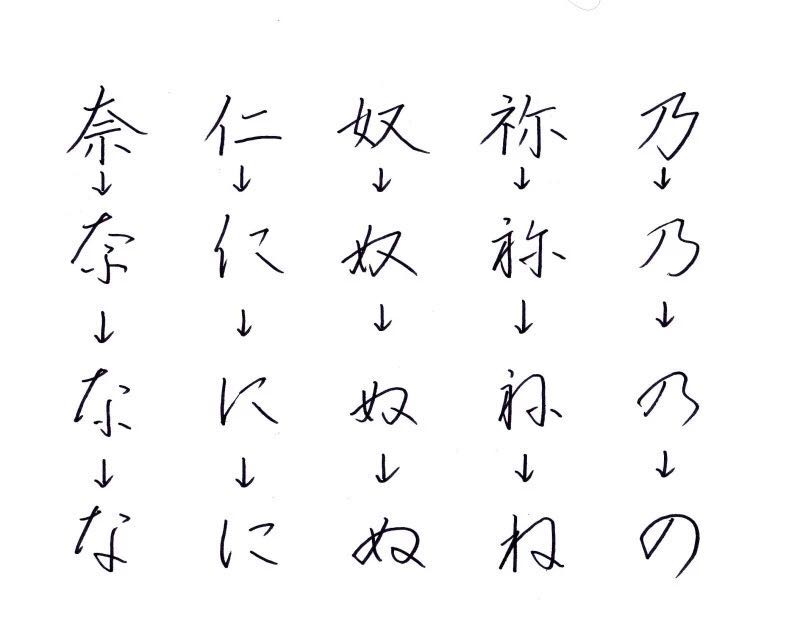 奈 仁 奴 祢 乃
↓ ↓ ↓ ↓ ↓
奈 仁 奴 祢 乃
↓ ↓ ↓ ↓ ↓
な に ぬ ね 乃
↓ ↓ ↓ ↓ ↓
な に ぬ ね の